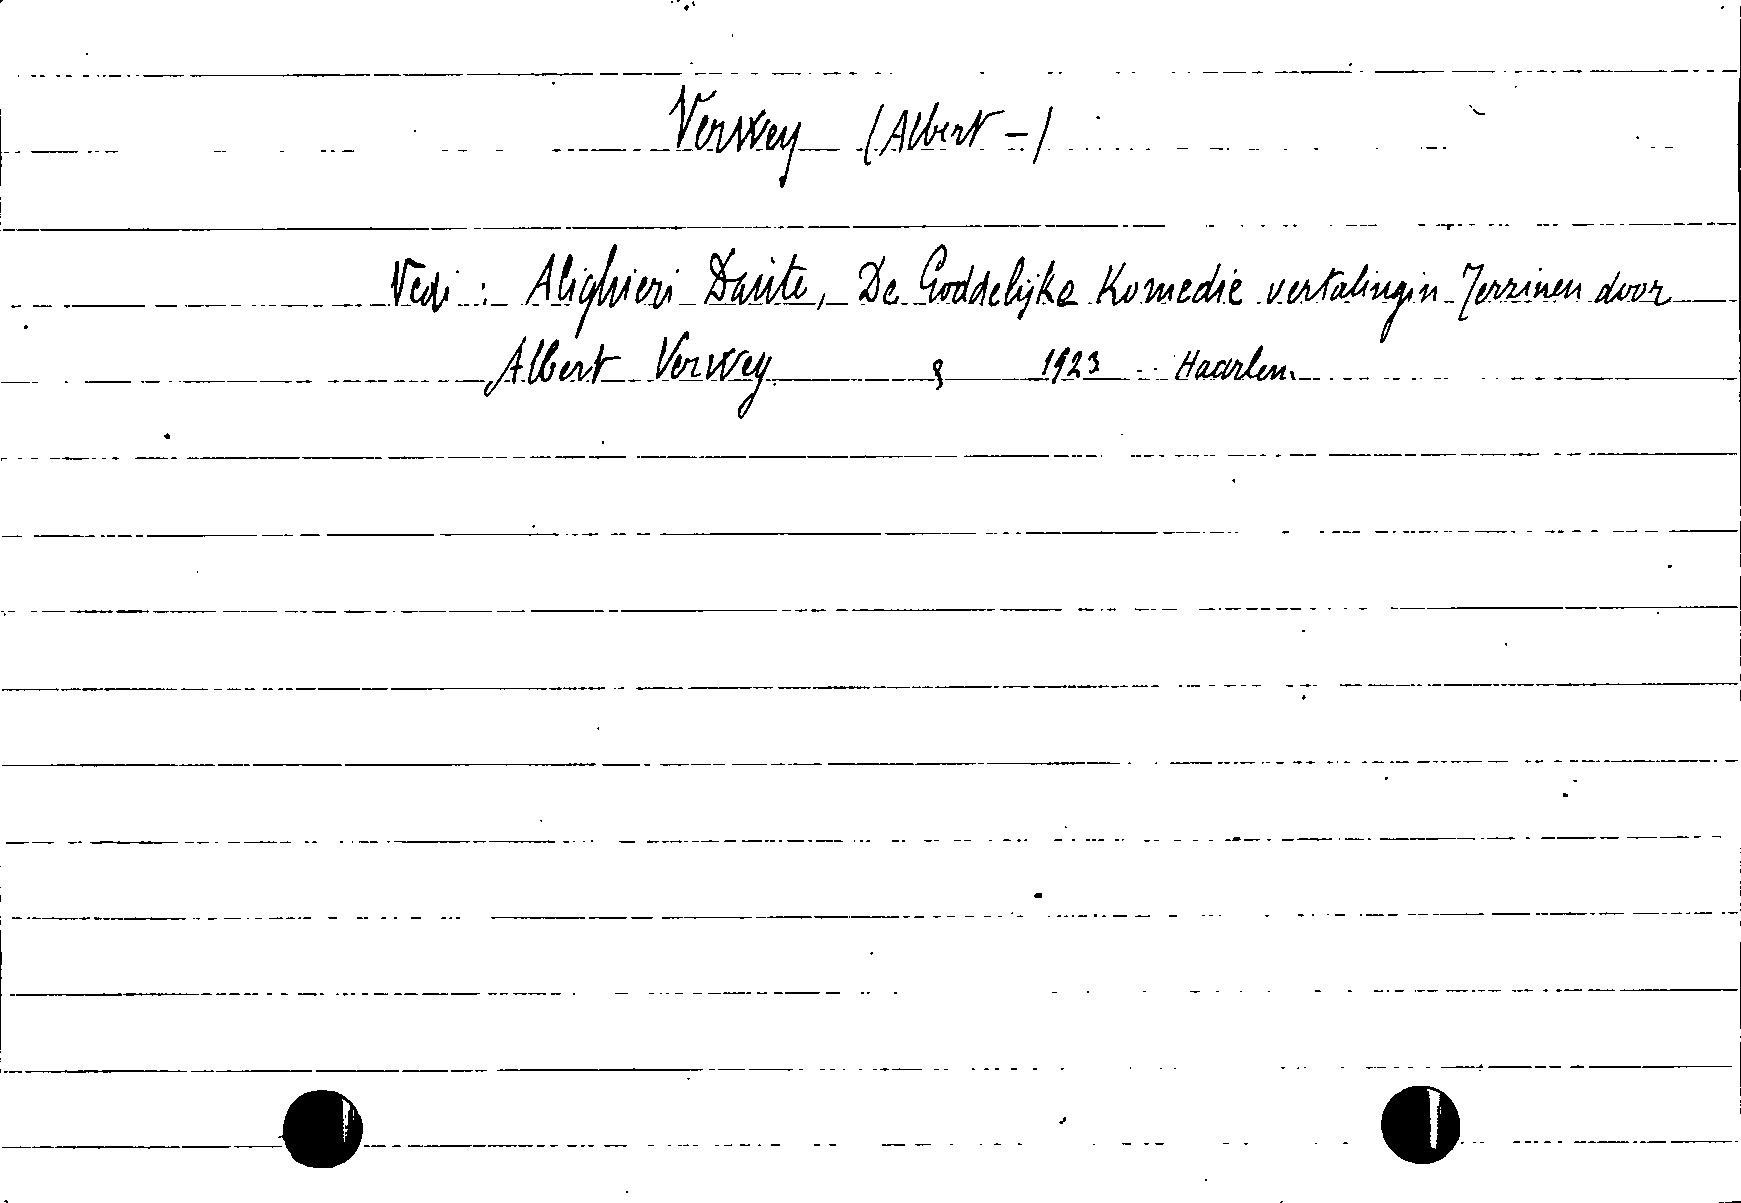 Verwey (Albert -)
Vedi : Alighieri Dante, De Goddelijke Komedie vertalingin Terzinen door
Albert Verwey 8 1923 Haarlem.